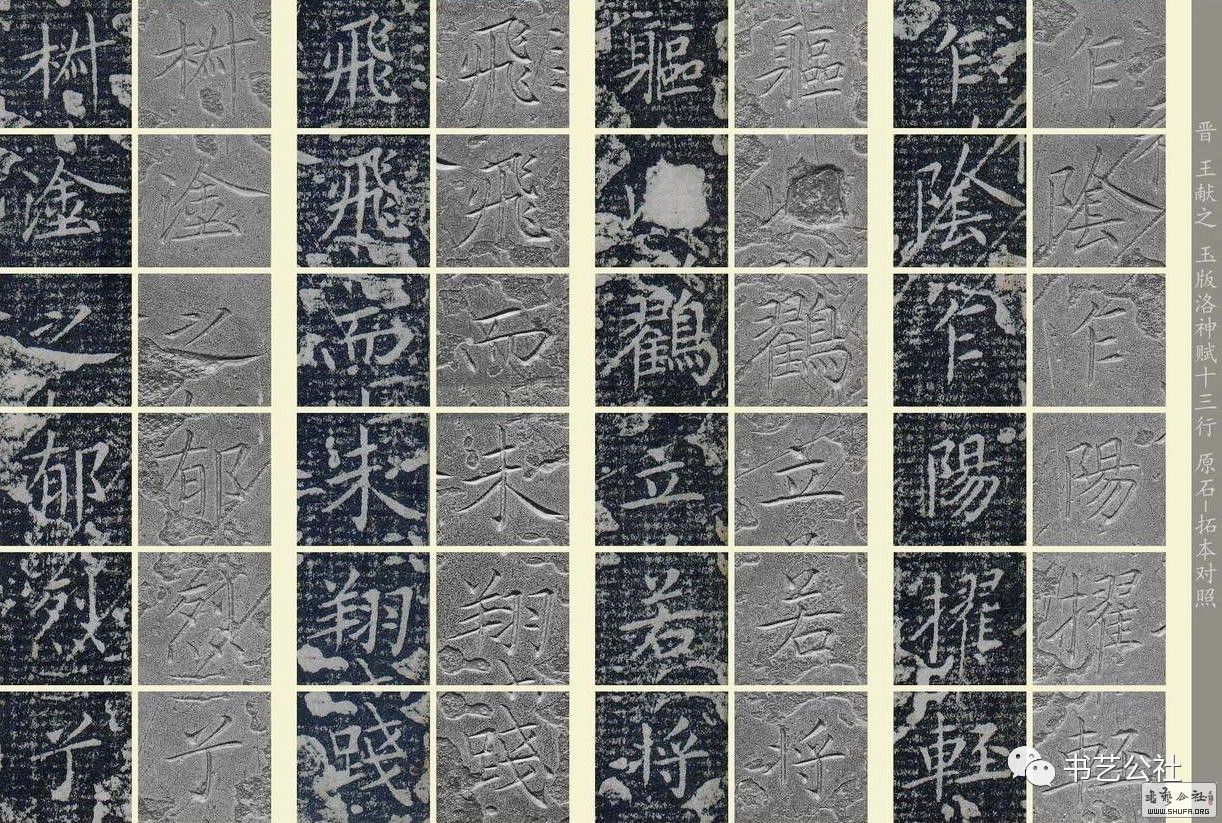 晋 王献之 玉版洛神赋十三行 原石-拓本对照
乍陰乍陽擢輕
乍陰乍陽擢輕
軀鶴立若将
軀鶴立若将
飛飛而未翔踐
飛飛而未翔踐
椒塗之郁烈
椒塗之郁烈
书艺公社
书艺公社
WWW.SHUFA.ORG